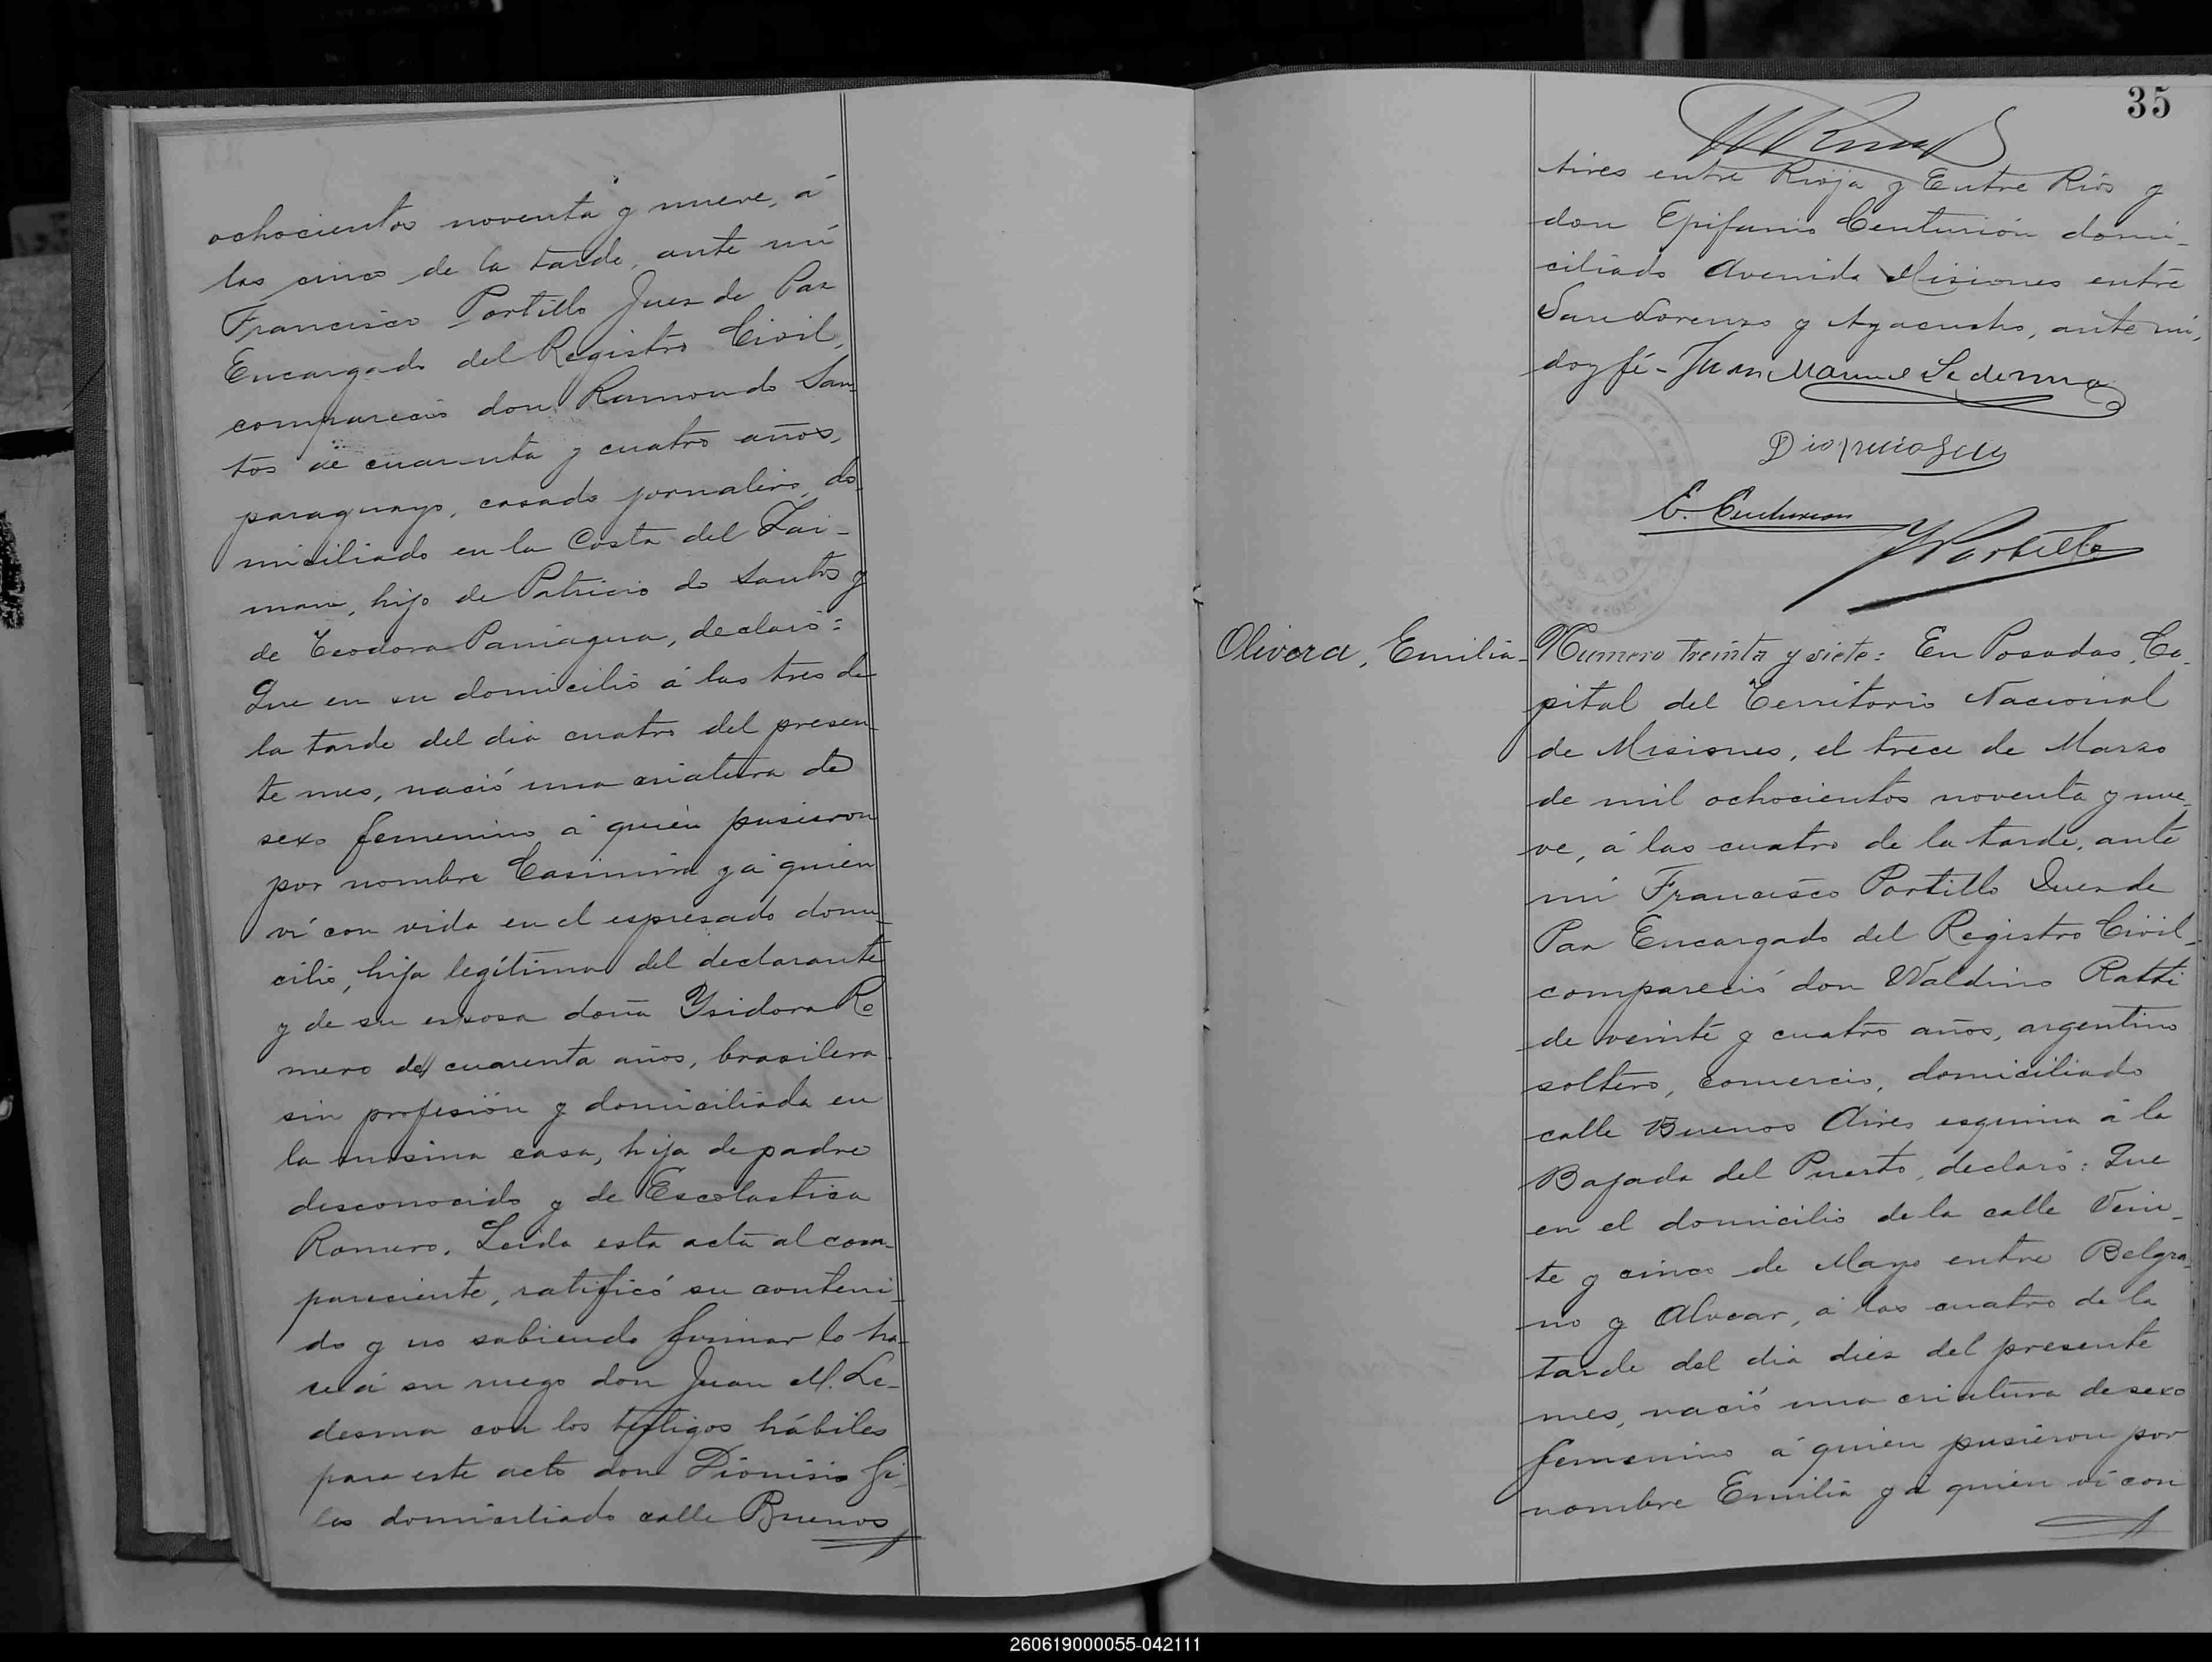 ochocientos noventa y nueve, á
las cinco de la tarde, ante mí
Francisco Portillo Juez de Paz
Encargado del Registro Civil,
compareció don Ramondo San-
tos de cuarenta y cuatro años,
paraguayo, casado jornalero, do-
miciliado en la Costa del Zai-
man, hijo de Patricio do Santos y
de Teodora Paniagua, declaró:
Que en su domicilio á las tres de
la tarde del dia cuatro del presen-
te mes, nació una criatura de
sexo femenino á quién pusieron
por nombre Casimira y á quién
ví con vida en el espresado domi-
cilio, hija legítima del declarante
y de su esposa doña Ysidora Ro
mero de cuarenta años, brasilera
sin profesión y domiciliada en
la misma casa, hija de padre
desconocido y de Escolastica
Romero. Leida esta acta al com-
pareciente, ratificó su conteni-
do y no sabiendo firmar lo ha-
ce á su ruego don Juan M. Le-
desma con los testigos hábiles
para este acto don Dionisio Gi-
les domiciliado calle Buenos
35
Aires entre Rioja y Entre Rios y
don Epifanio Centurión domi-
ciliado Avenida Misiones entre
San Lorenzo y Ayacucho, ante mí,
doy fé - Juan Manuel Ledesma
E. Centurion
Portillo
Olivera, Emilia - Numero treinta y siete: En Posadas, Ca-
pital del Territorio Nacional
de Misiones, el trece de Marzo
de mil ochocientos noventa y nue-
ve, á las cuatro de la tarde, ante
mí Francisco Portillo Juez de
Paz Encargado del Registro Civil-
compareció don Waldino Ratti
de veinte y cuatro años, argentino
soltero, comercio, domiciliado
calle Buenos Aires esquina á la
Bajada del Puerto, declaró: Que
en el domicilio de la calle Vein-
te y cinco de Mayo entre Belgra-
no y Alvear, á las cuatro de la
tarde del dia diez del presente
mes, nació una criatura de sexo
femenino á quién pusieron por
nombre Emilia y á quién ví con
260619000055-042111